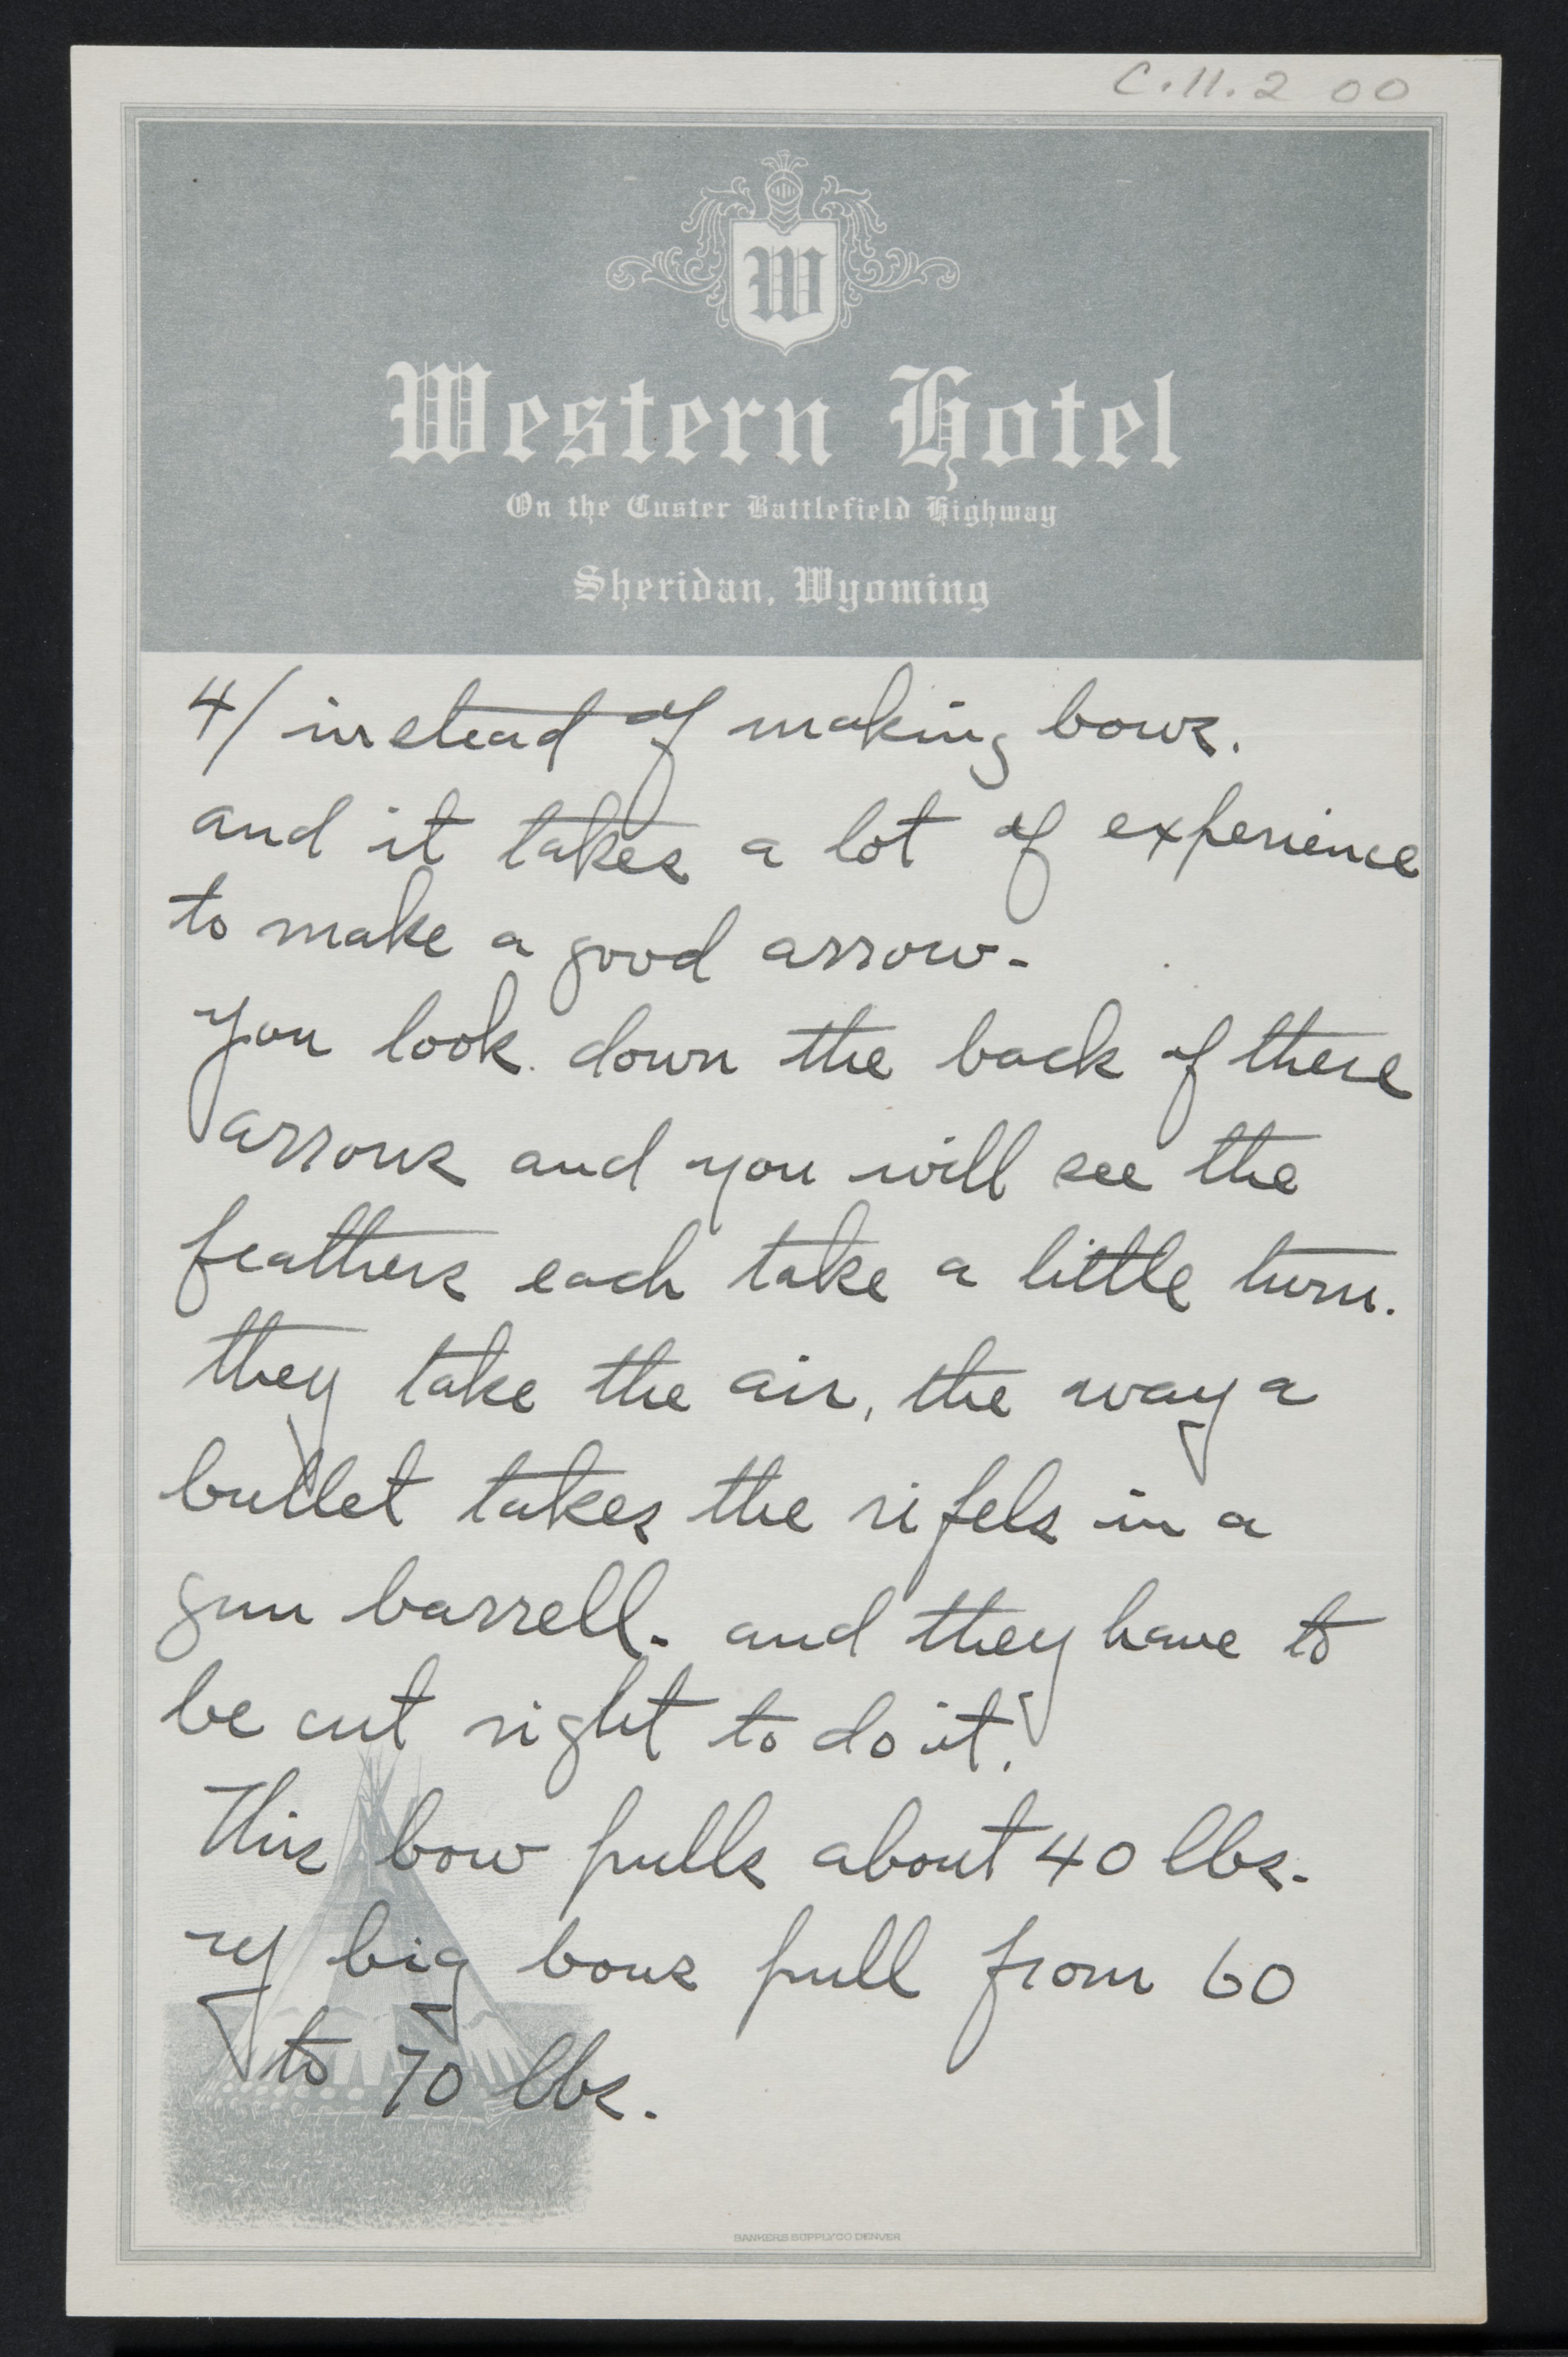 C.11.2 00
W
Western Hotel
On the Custer Battlefield Highway
Sheridan, Wyoming
4/ instead of making bows.
and it takes a lot of experience
to make a good arrow-
you look down the back of these
arrows and you will see the
feathers each take a little turn.
they take the air, the way a
bullet takes the rifels in a
gun barrell. and they have to
be cut right to do it.
This bow pulls about 40 lbs.
my big bows pull from 60
to 70 lbs.
BANKERS SUPPLY CO DENVER